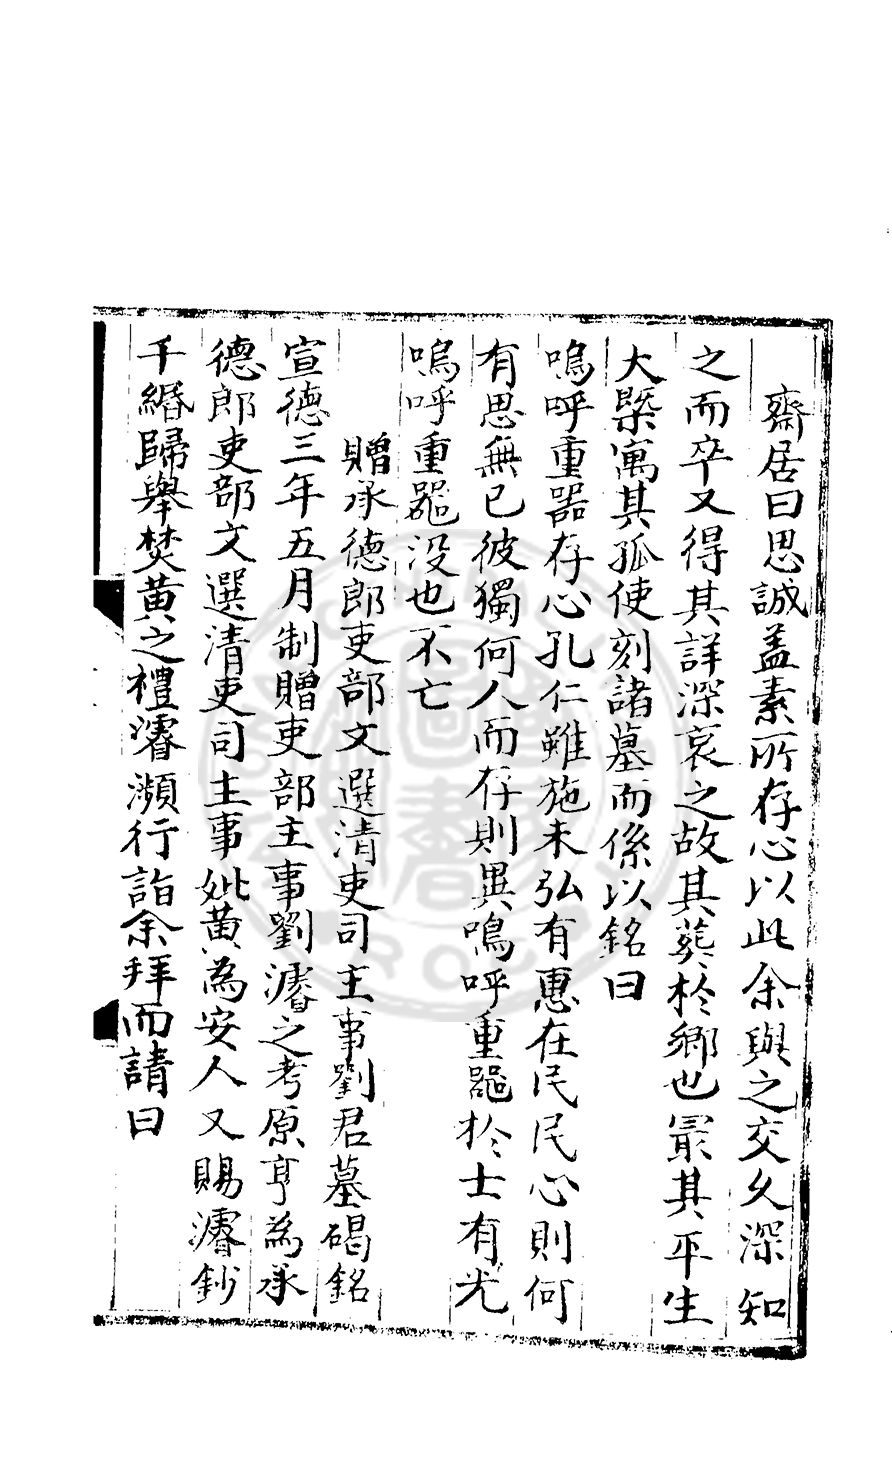 齋居曰思誠盖素所存心以此余與之交久深知
之而卒又得其詳深哀之故其葬於鄉也冣其平生
大槩寓其孤使刻諸墓而係以銘曰
嗚呼重器存心孔仁雖施未弘有惠在民民心則何
有思無已彼獨何人而存則異嗚呼重器於士有光
嗚呼重器没也不亡
贈承德郎吏部文選清吏司主事劉君墓碣銘
宣德三年五月制贈吏部主事劉濬之考原亨為承
德郎吏部文選清吏司主事妣黄為安人又賜濬鈔
千緡歸舉焚黄之禮濬瀕行詣余拜而請曰